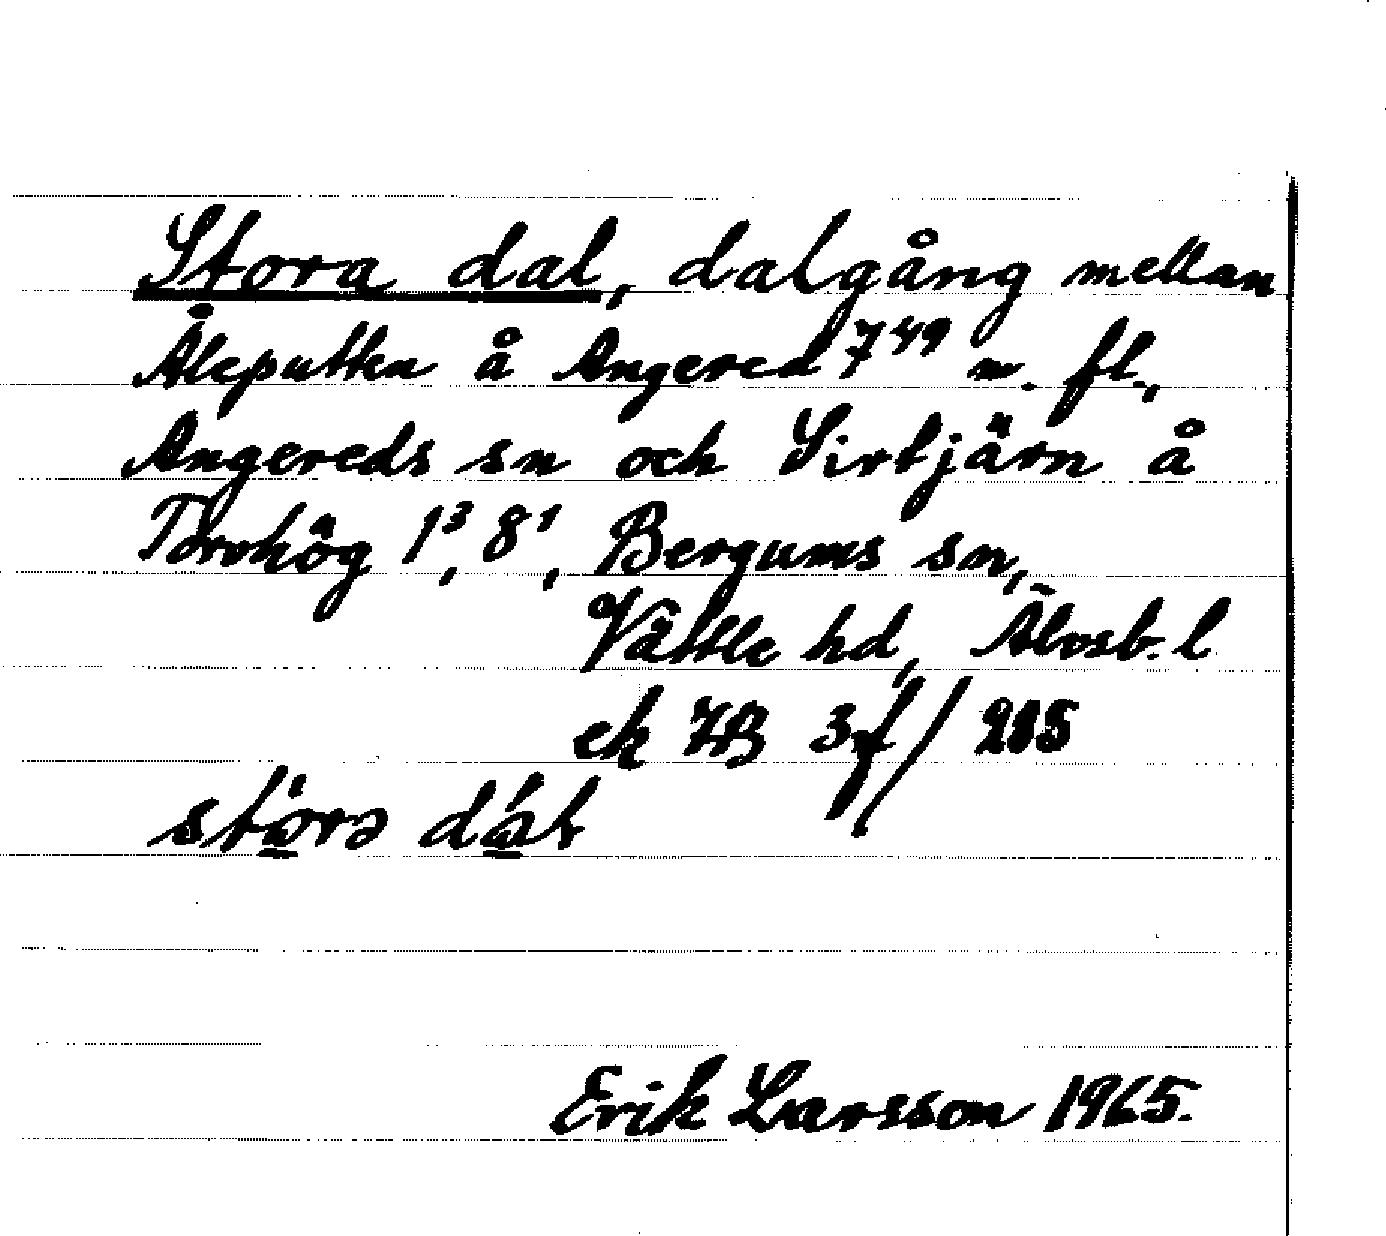 Stora dal, dalgång mellan
Åleputten å Angered 7⁴⁹ m. fl.,
Angereds sn och Sirtjärn å
Torvhög 1³, 8¹, Bergums sn,
Vättle hd, Älvsb. l
ek 7B 3f/ 205
störə dál
Erik Larsson 1965.